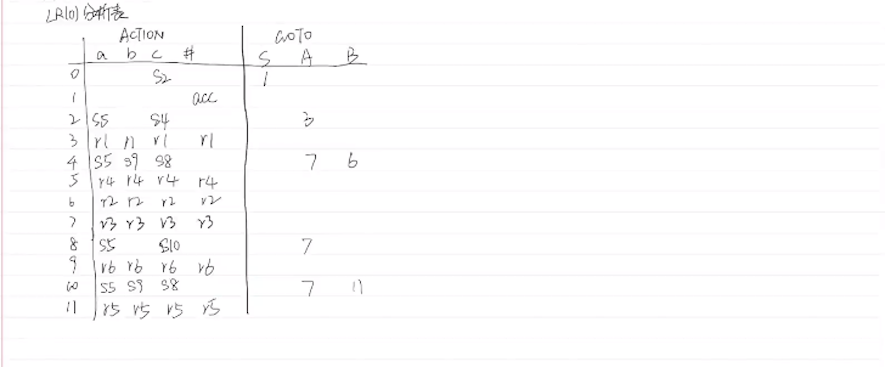 LR(0)分析表
ACTION GOTO
a b c # S A B
0 S2 1
1 acc
2 S5 S4 3
3 r1 r1 r1 r1
4 S5 S9 S8 7 6
5 r4 r4 r4 r4
6 r2 r2 r2 r2
7 r3 r3 r3 r3
8 S5 S10 7
9 r6 r6 r6 r6
10 S5 S9 S8 7 11
11 r5 r5 r5 r5